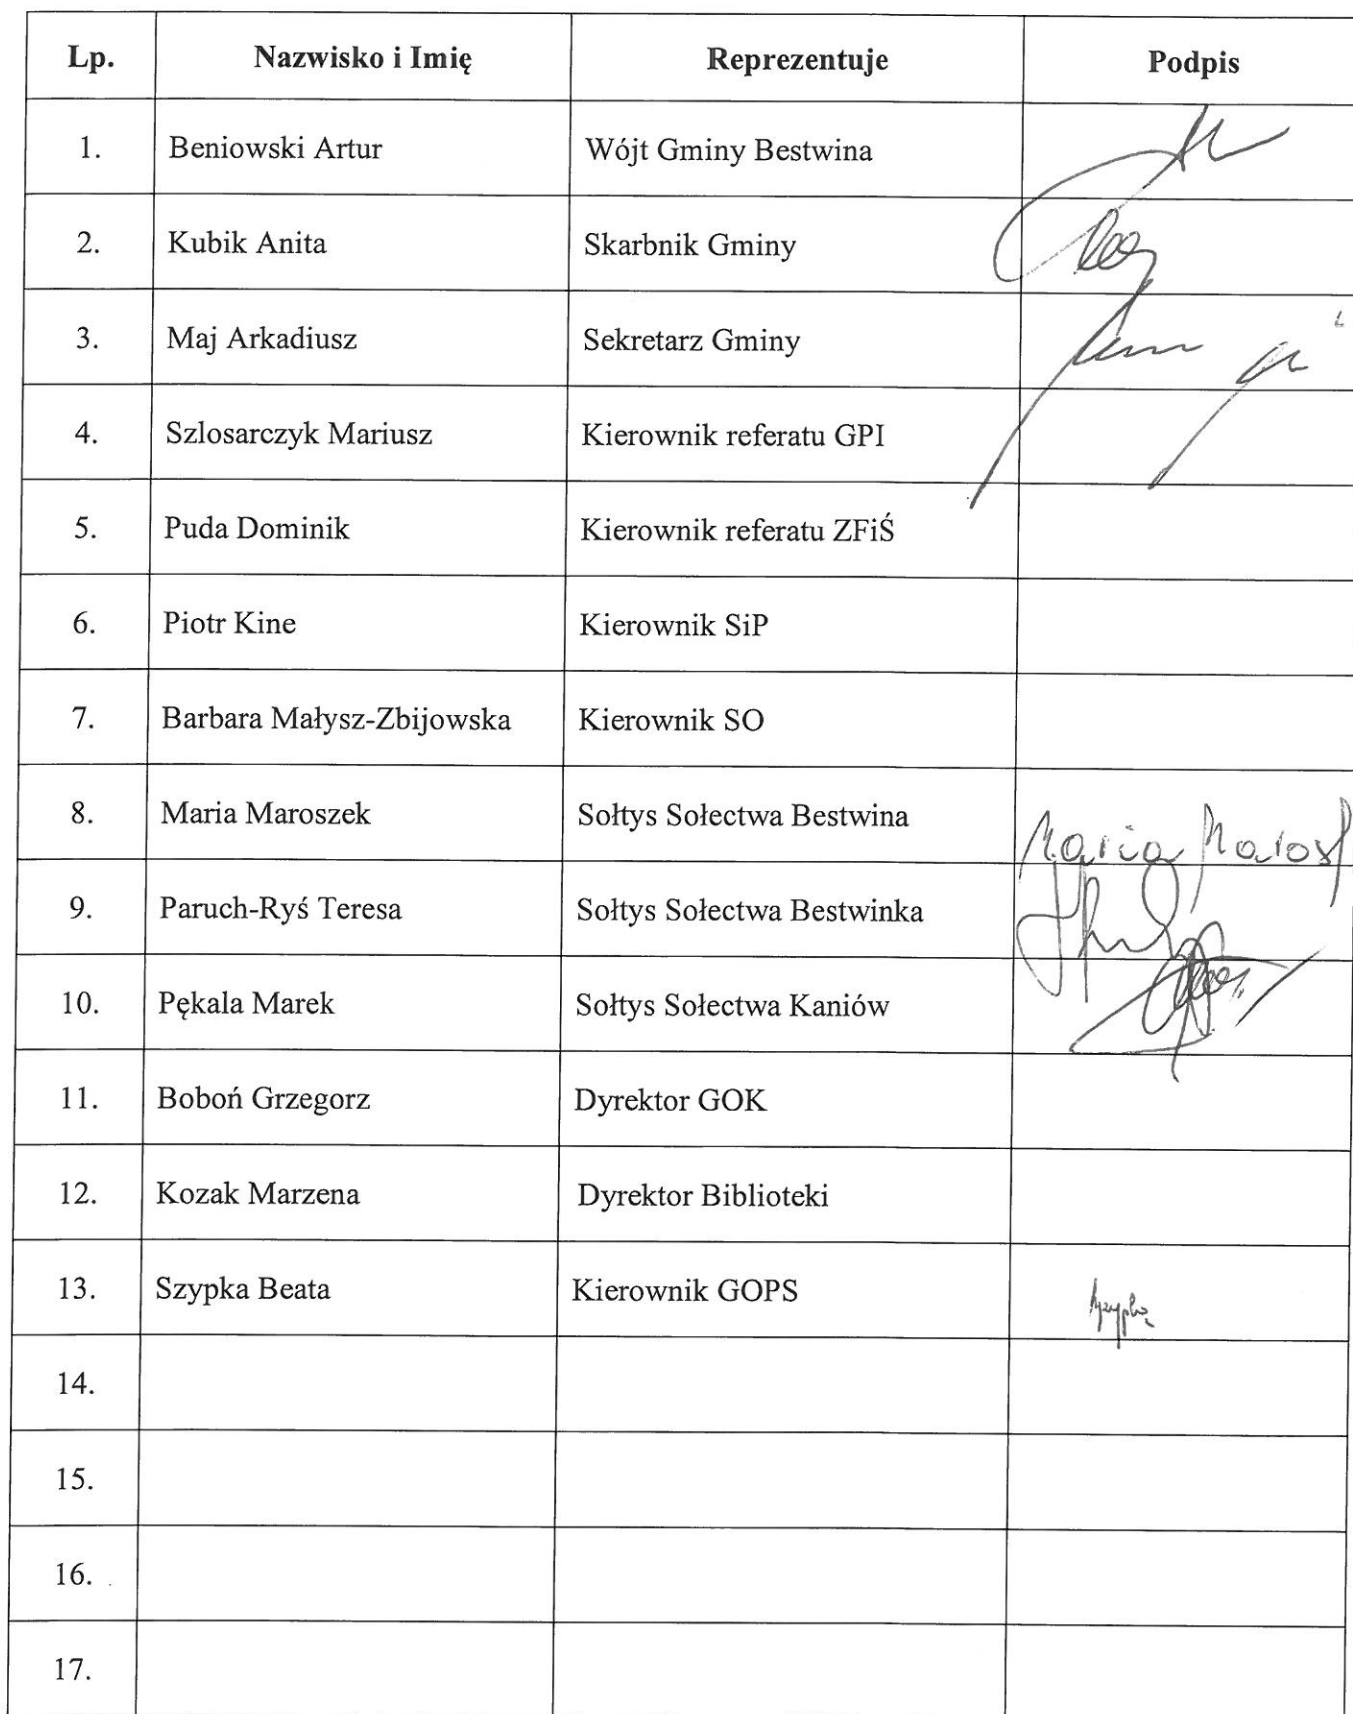 Lp. Nazwisko i Imię Reprezentuje Podpis
1. Beniowski Artur Wójt Gminy Bestwina
2. Kubik Anita Skarbnik Gminy
3. Maj Arkadiusz Sekretarz Gminy
4. Szlosarczyk Mariusz Kierownik referatu GPI
5. Puda Dominik Kierownik referatu ZFiŚ
6. Piotr Kine Kierownik SiP
7. Barbara Małysz-Zbijowska Kierownik SO
8. Maria Maroszek Sołtys Sołectwa Bestwina Maria
9. Paruch-Ryś Teresa Sołtys Sołectwa Bestwinka
10. Pękala Marek Sołtys Sołectwa Kaniów
11. Boboń Grzegorz Dyrektor GOK
12. Kozak Marzena Dyrektor Biblioteki
13. Szypka Beata Kierownik GOPS
14.
15.
16.
17.